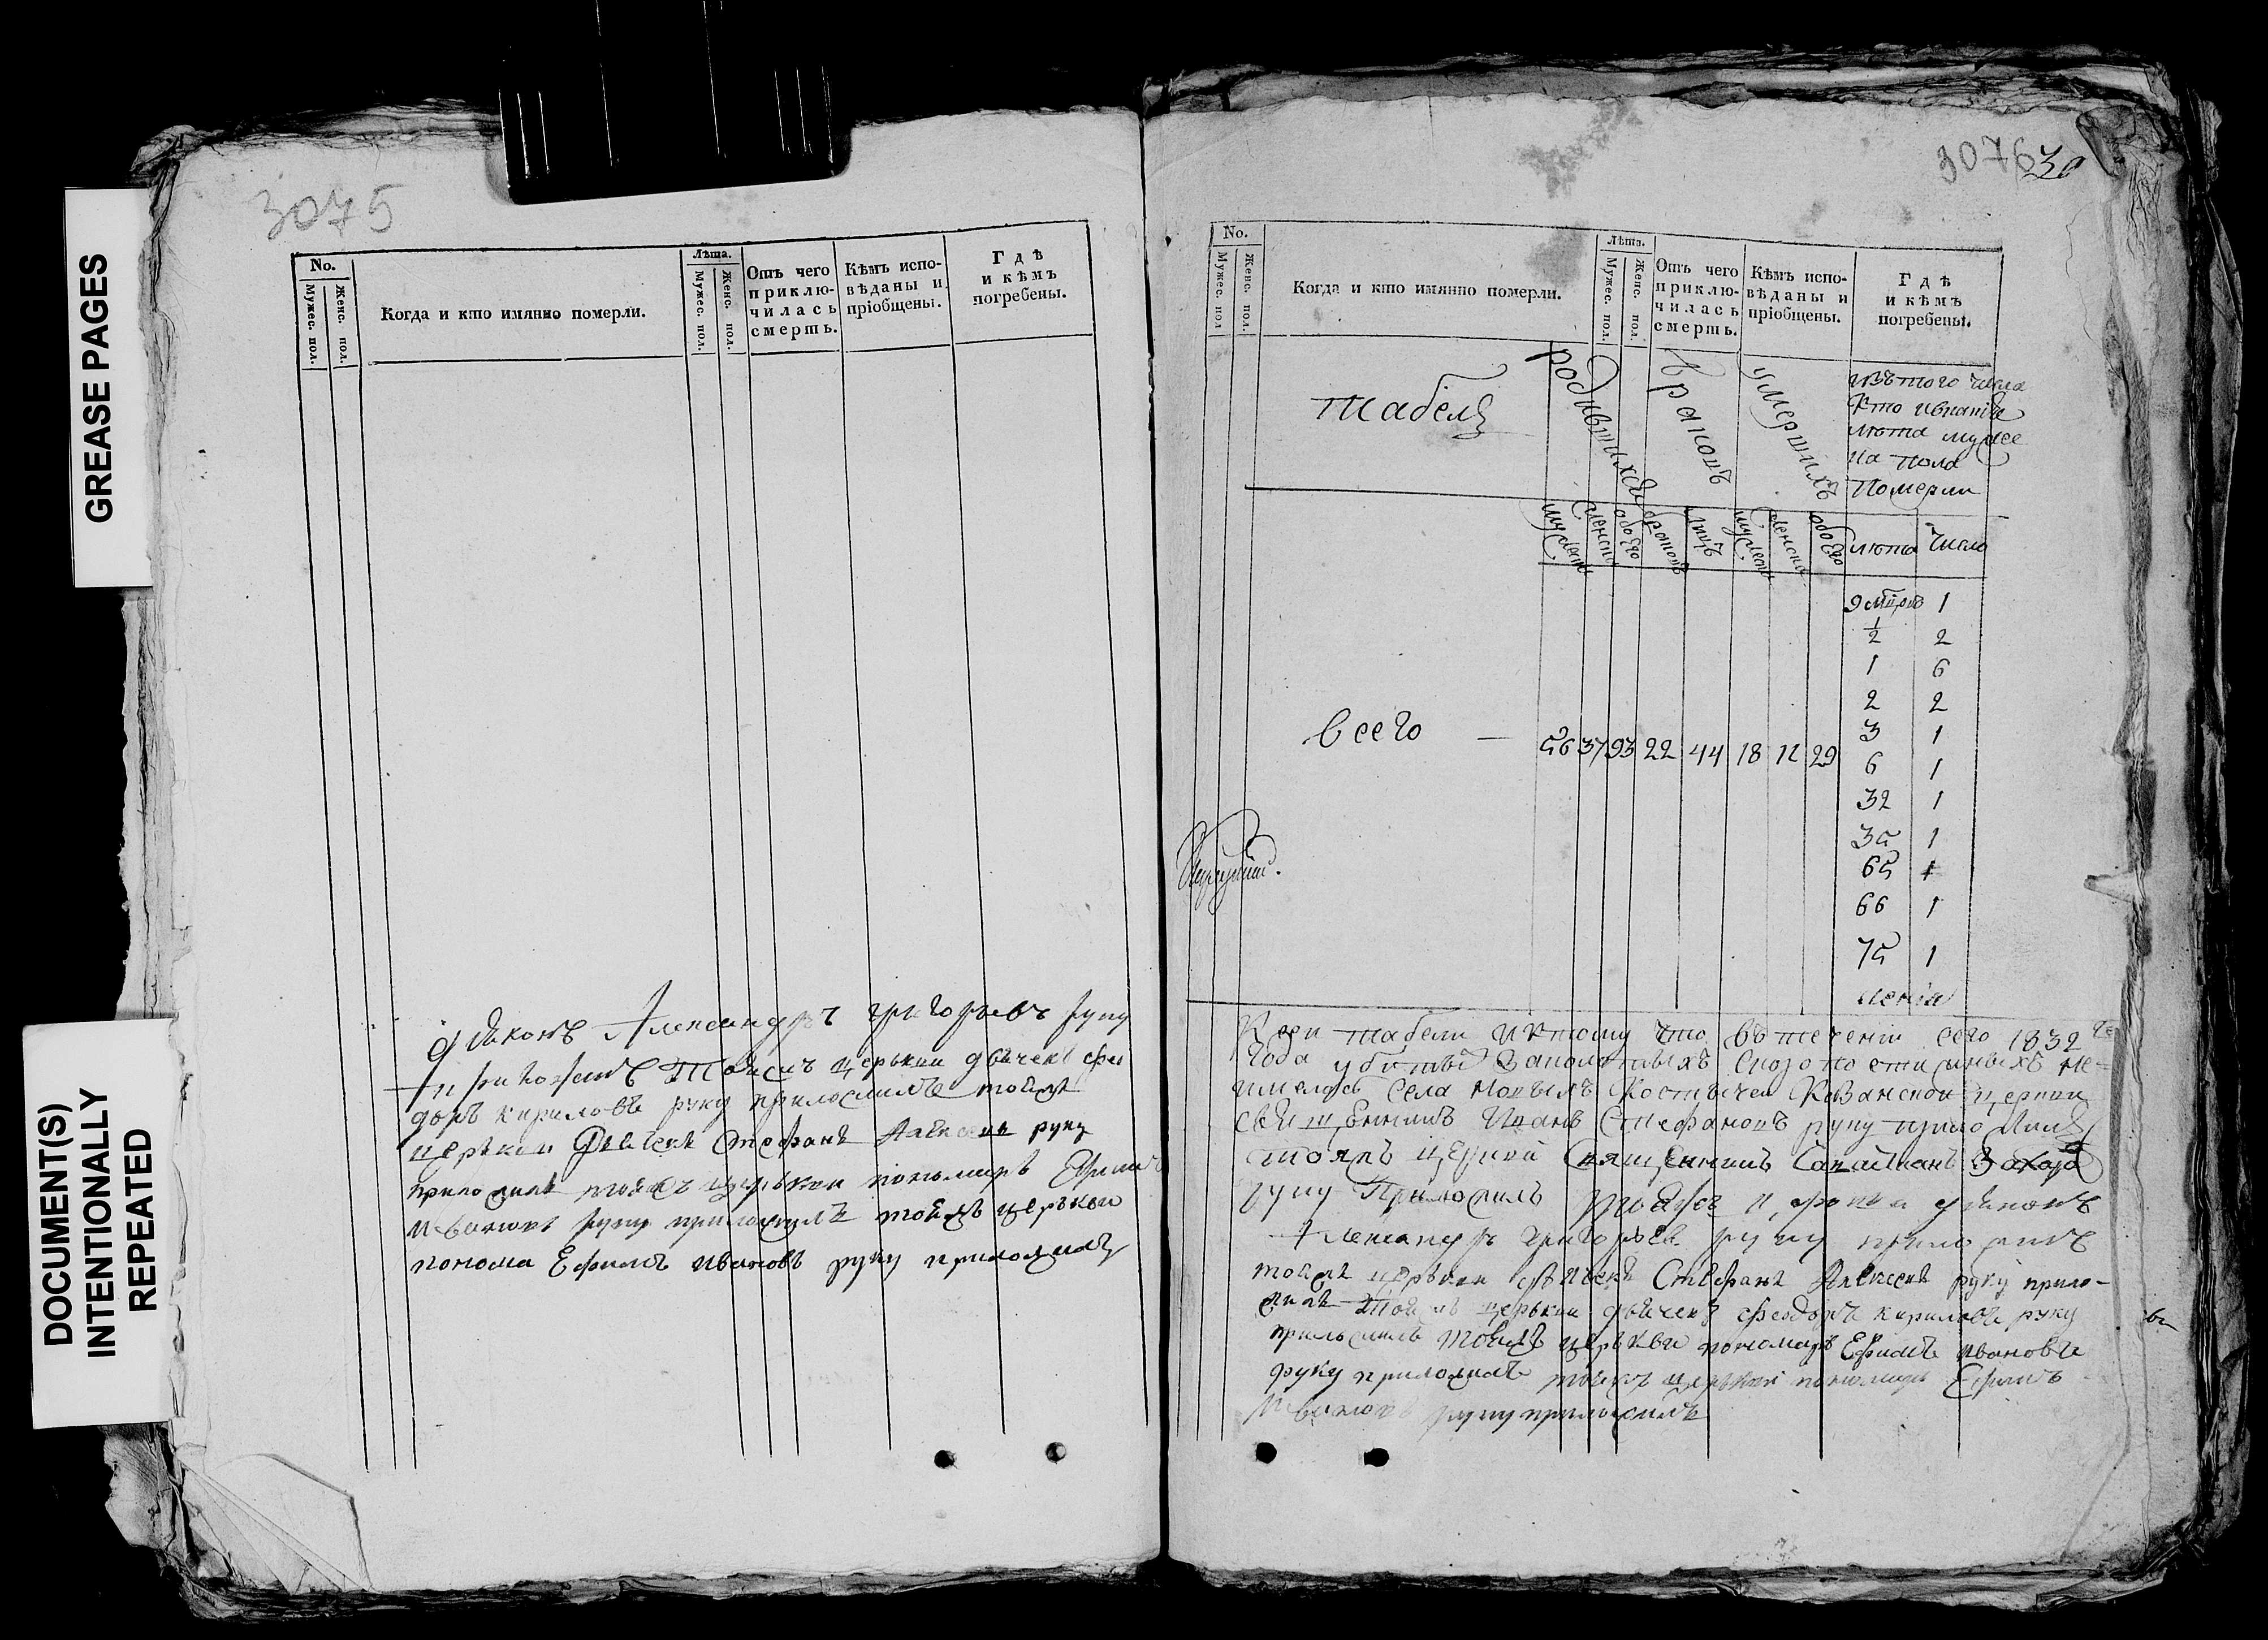 GREASE PAGES
DOCUMENT(S)
INTENTIONALLY
REPEATED
3075
No.
Мужес. пол.
Женс. пол.
Когда и кто имянно померли.
Лѣта.
Мужес. пол.
Женс. пол.
Отъ чего
приклю-
чилась
смерть.
Кѣмъ испо-
вѣданы и
пріобщены.
Гдѣ
и кѣмъ
погребены.
діаконъ Александръ григорьевъ руку
приложилъ Тойжъ церькви дьячекъ фео
доръ кириловъ руку приложилъ тойже
церькви Дьячекъ Стефанъ Алексеевъ руку
приложилъ тойжъ церькви пономарь Ефимъ
Ивановъ руку приложилъ тойжъ церькви
понома Ефимъ ивановъ руку приложилъ
3076
30
No.
Мужес. пол
Женс. пол.
Когда и кто имянно померли.
Лѣта.
Мужес. пол
Женс. пол
Отъ чего
приклю-
чилась
смерть.
Кѣмъ испо-
вѣданы и
пріобщены.
Гдѣ
и кѣмъ
погребены.
табель
родившихся
браковъ
умершихъ
изътого числа
кто
лѣта муже
ска пола
Померли
мужеск
женск
обоего
браковъ
лицъ
мужеск
женска
обоего
лѣта
число
1
1/2 2
1 6
2 2
3 1
6 1
32 1
35 1
65 1
66 1
75 1
всего — 56 37 93 22 44 18 11 29
К сей табели и ктому что въ течении сего 1832 го
года убитыхъ скоропостижныхъ не-
имелось Села Новыхъ Костычей Казанской церкви
священникъ Иоанъ Стефановъ руку приложилъ
тояжъ церкви Священникъ
руку Приложилъ церкви діаконъ
Александръ григорьевъ руку приложилъ
тойже церькви дьячекъ Стефанъ Алексеевъ руку прило-
жилъ Тойжъ церькви дьячекъ феодоръ кириловъ руку
приложилъ Тойжъ церькви пономарь Ефимъ ивановъ
руку приложилъ тойжъ церькви пономарь Ефимъ
Ивановъ руку приложилъ